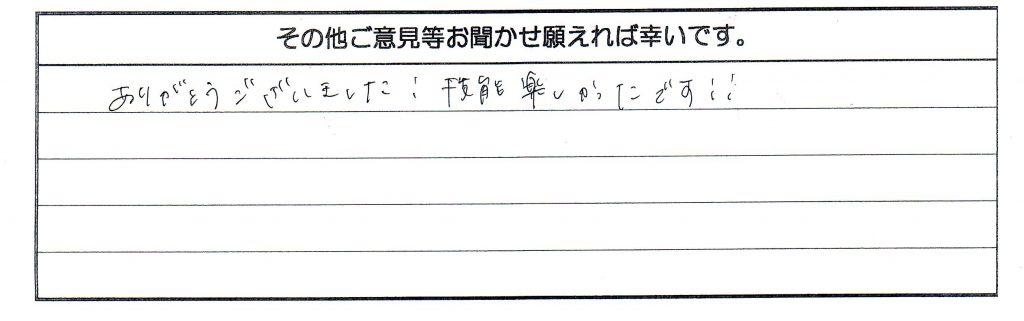 その他ご意見等お聞かせ願えれば幸いです。
ありがとうございました! 技能楽しかったです!!